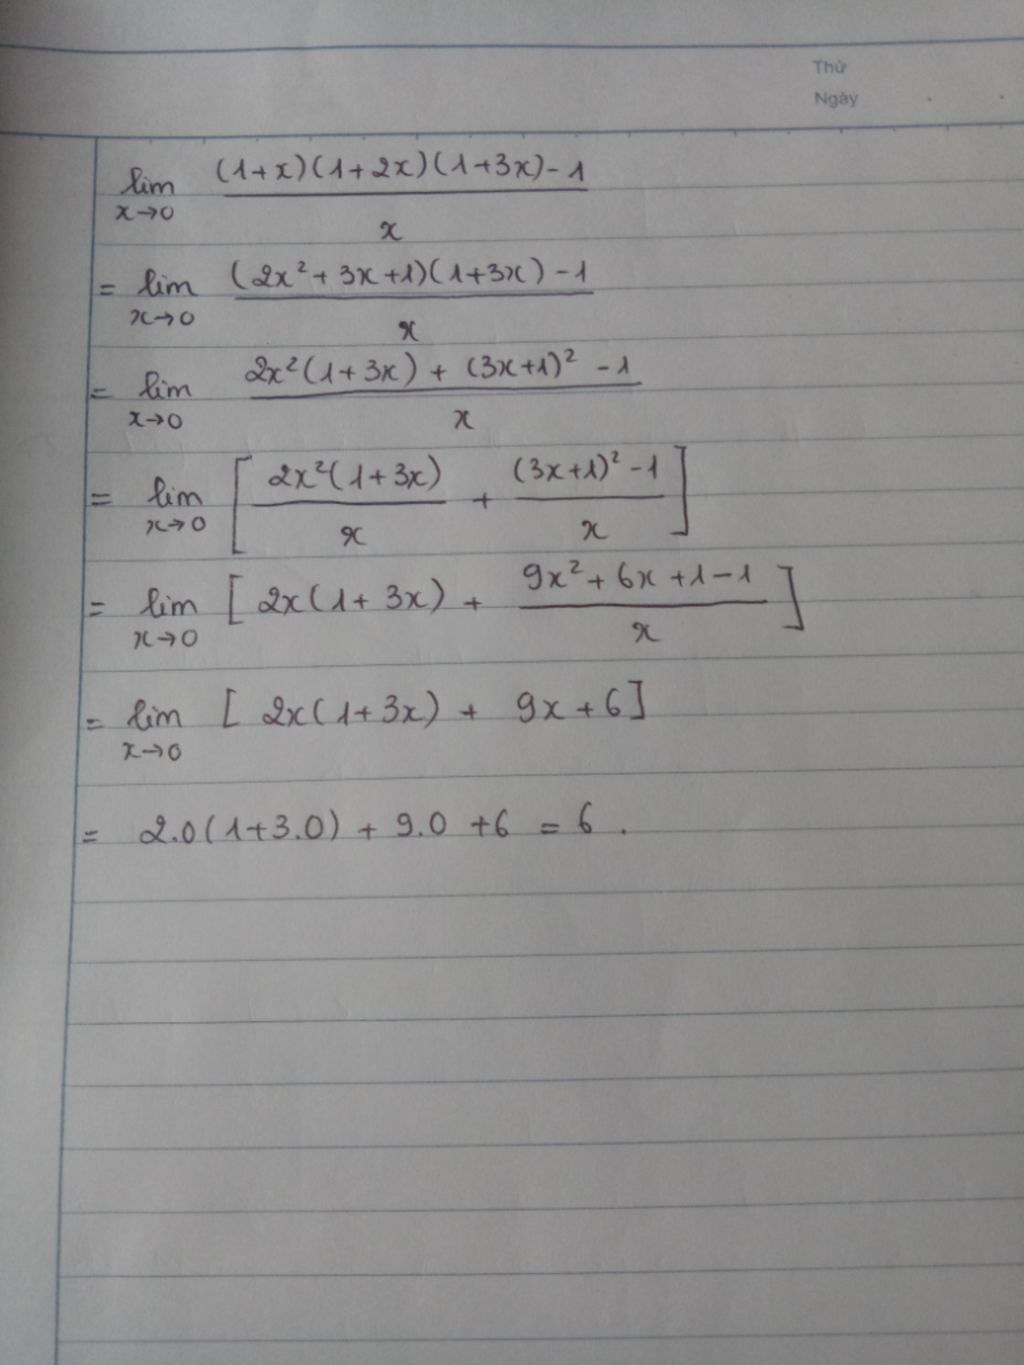 Thứ
Ngày
lim_{x→0} \frac{(1+x)(1+2x)(1+3x)-1}{x}
= lim_{x→0} \frac{(2x²+3x+1)(1+3x)-1}{x}
= lim_{x→0} \frac{2x²(1+3x)+(3x+1)²-1}{x}
= lim_{x→0} [\frac{2x²(1+3x)}{x} + \frac{(3x+1)²-1}{x}]
= lim_{x→0} [2x(1+3x) + \frac{9x²+6x+1-1}{x}]
= lim_{x→0} [2x(1+3x) + 9x+6]
= 2.0(1+3.0) + 9.0 +6 = 6 .